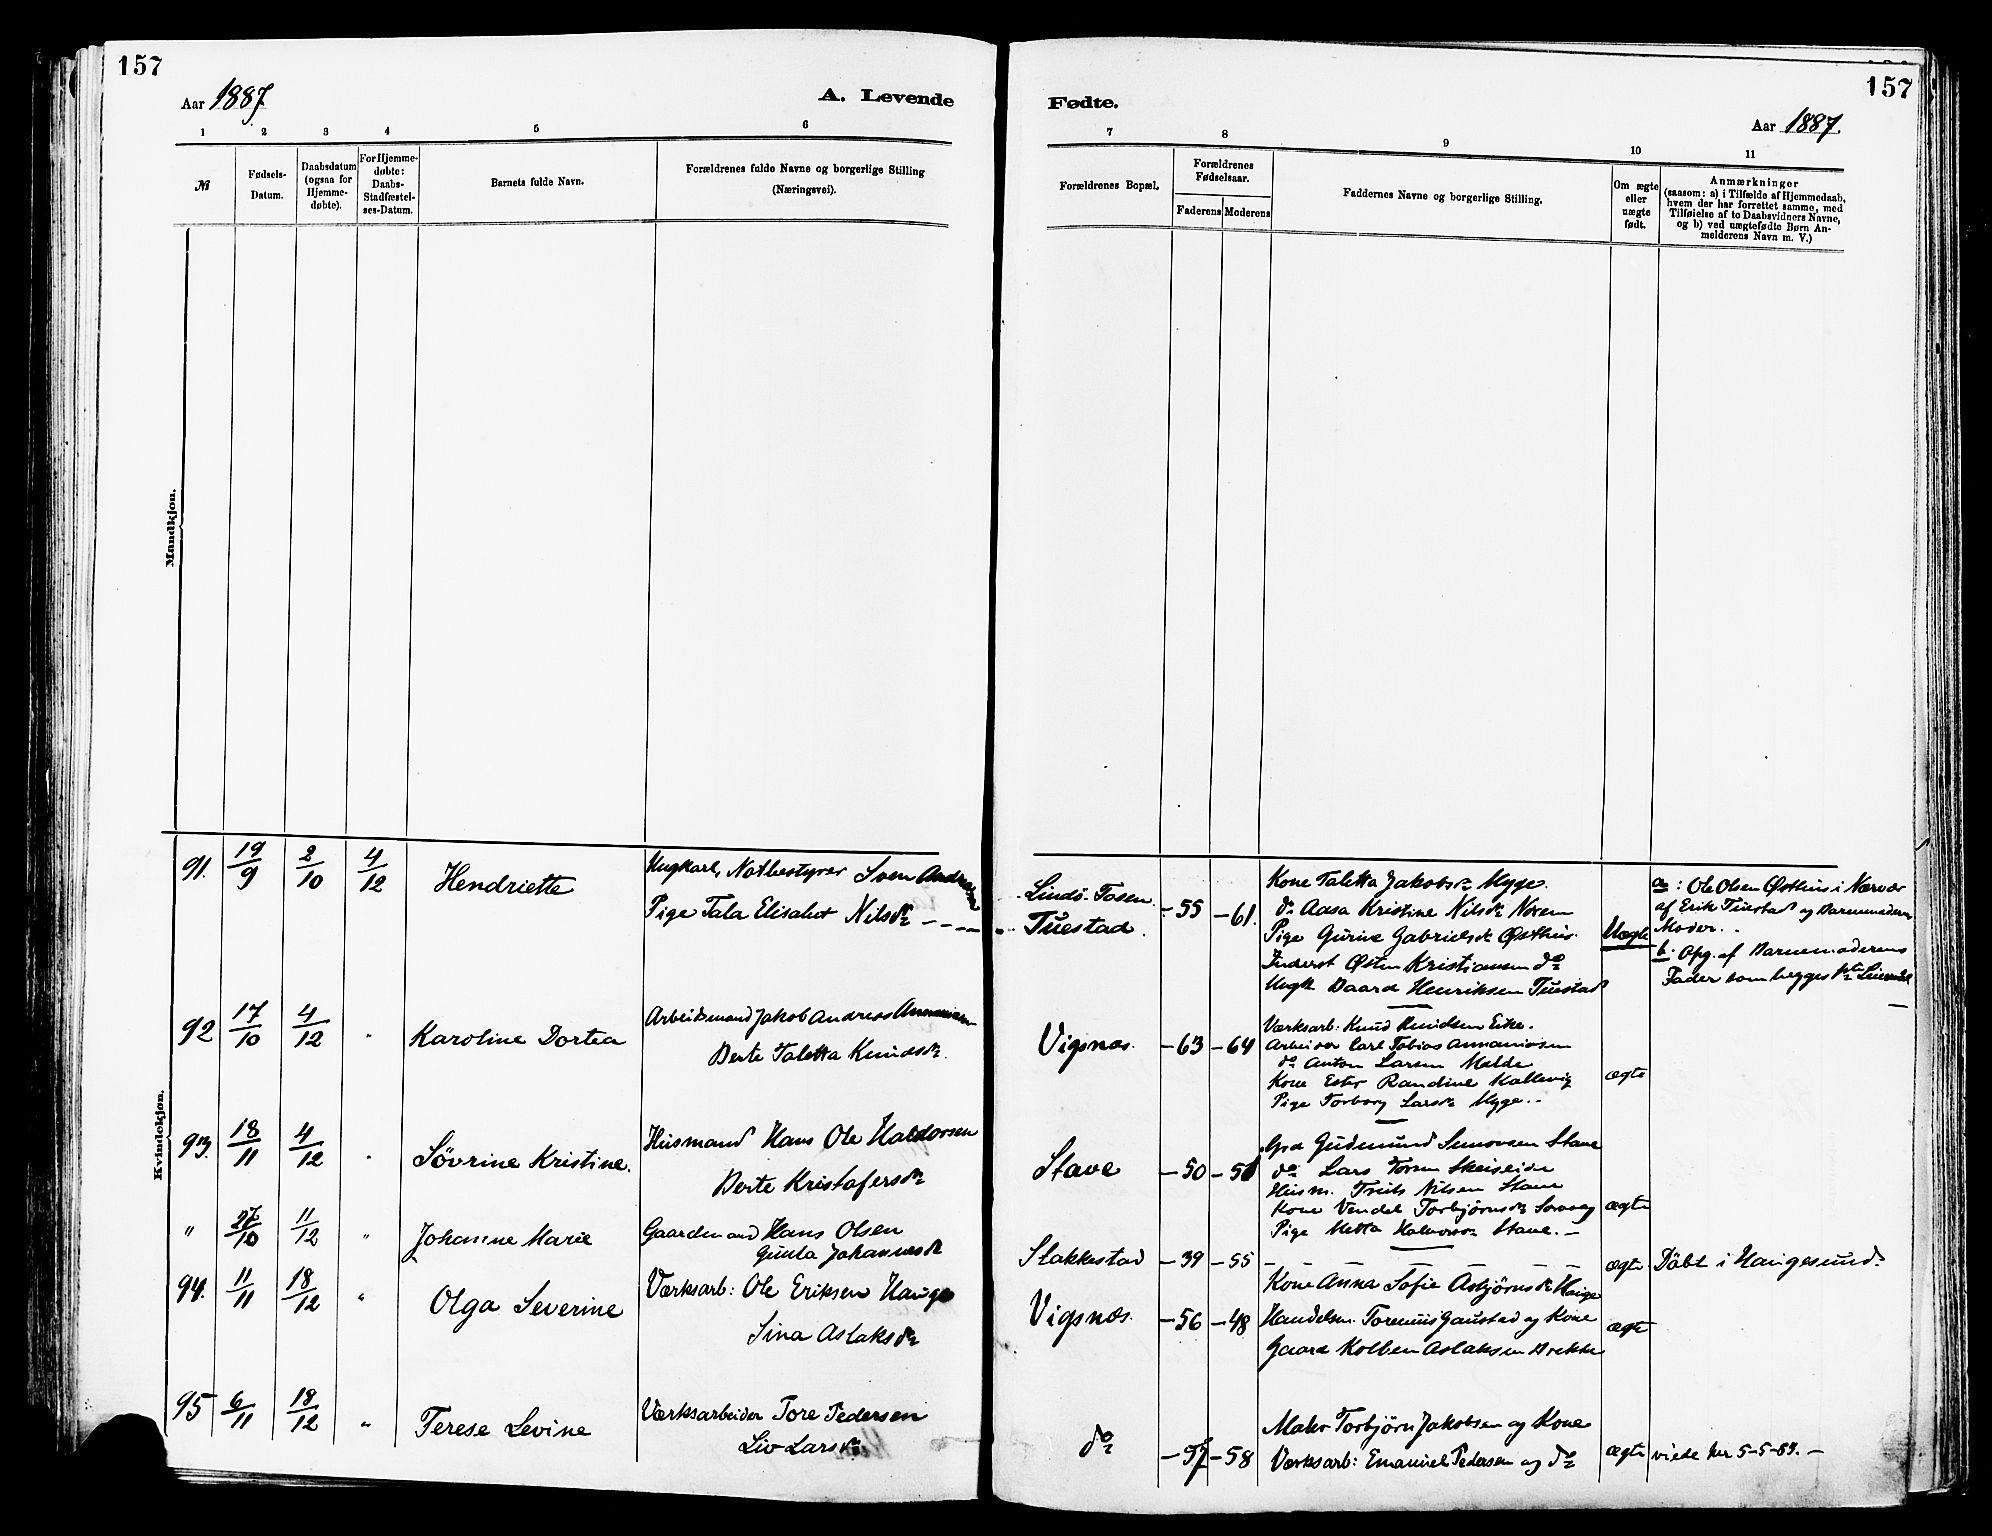 157
Aar 1887
A. Levende
1 2 3 4 5 6
№
Fødsels-
Datum.
Daabsdatum
(ogsaa for
Hjemme-
døbte).
For Hjemme-
døbte:
Daabs-
Stadfæstel-
ses-Datum.
Barnets fulde Navn.
Forældrenes fulde Navne og borgerlige Stilling
(Næringsvei).
Mandkjøn.
Kvindekjøn.
91. 19/9 2/10 4/12 Hendriette
Ungkarl, Notbestyrer Sven Andersen
Pige Tala Elisabet Nilsdr
92 17/10 4/12 " Karoline Dortea
Arbeidsmand Jakob Andreas
Berte Taletta Knudsdr
93 18/11 4/12 " Søvrine Kristine.
Husmand Hans Ole Haldorsen
Berte Kristofersdr
" 27/10 11/12 " Johanne Marie
Gaardmand Hans Olsen
Gunla Johannesdr
94. 11/11 18/12 " Olga Severine
Værksarb: Ole Eriksen Hauge
Sina Aslaksdr
95 6/11 18/12 " Terese Levine
Værksarbeider Tore Pedersen
Liv Larsdr
Fødte.
157
Aar 1887.
7 8 9 10 11
Forældrenes Bopæl.
Forældrenes
Fødselsaar.
Faderens Moderens
Faddernes Navne og borgerlige Stilling.
Om ægte
eller
uægte
født.
Anmærkninger
(saasom: a) i Tilfælde af Hjemmedaab,
hvem der har forrettet samme, med
Tilføielse af to Daabsvidners Navne,
og b) ved uægtefødte Børn An-
melderens Navn m. V.)
Lindö-Fosen.
Tuestad. -55 -61.
Kone Taletta Jakobsdr Myge.
do Aasa Kristine Nilsdr Norem
Pige Gurine Gabrielsdr Østhus.
Inderst Østen Kristiansen do
Ungk Baard Henriksen Tuestad
Uægte
a: Ole Olsen Østhus i Nærvær
af Erik Tuestad og Barnemoderens
Moder.
b. Opg. af Barnemoderens
Fader som begges
Vigsnæs. -63 -64
Værksarb: Knud Knudsen Eike.
Arbeider Carl Tobias Annaniasen
do Anton Larsen Melde
Kone Ester Randine Kallevig
Pige Torborg Larsdr Myge.
ægte
Stave -50 -51
Grd Gudmund Simonsen Stave
do Lars Toresen Skeiseide
Husm. Truls Nilsen Stave
Kone Vendel Torbjørnsdr
Pige Metta Halvorsdr Stave.
ægte
Stakkestad -39 -55 ægte Døbt i Haugesund.
Vigsnæs. -56 -48
Kone Anna Sofie Asbjørnsdr Hauge
Handelsm. Toremius Gaustad og Kone
Gaard Kolben Aslaksen Brekke
ægte
do -57 -58
Maler Torbjørn Jakobsen og Kone
Værksarb: Emanuel Pedersen og do
ægte viede her 5-5-87.